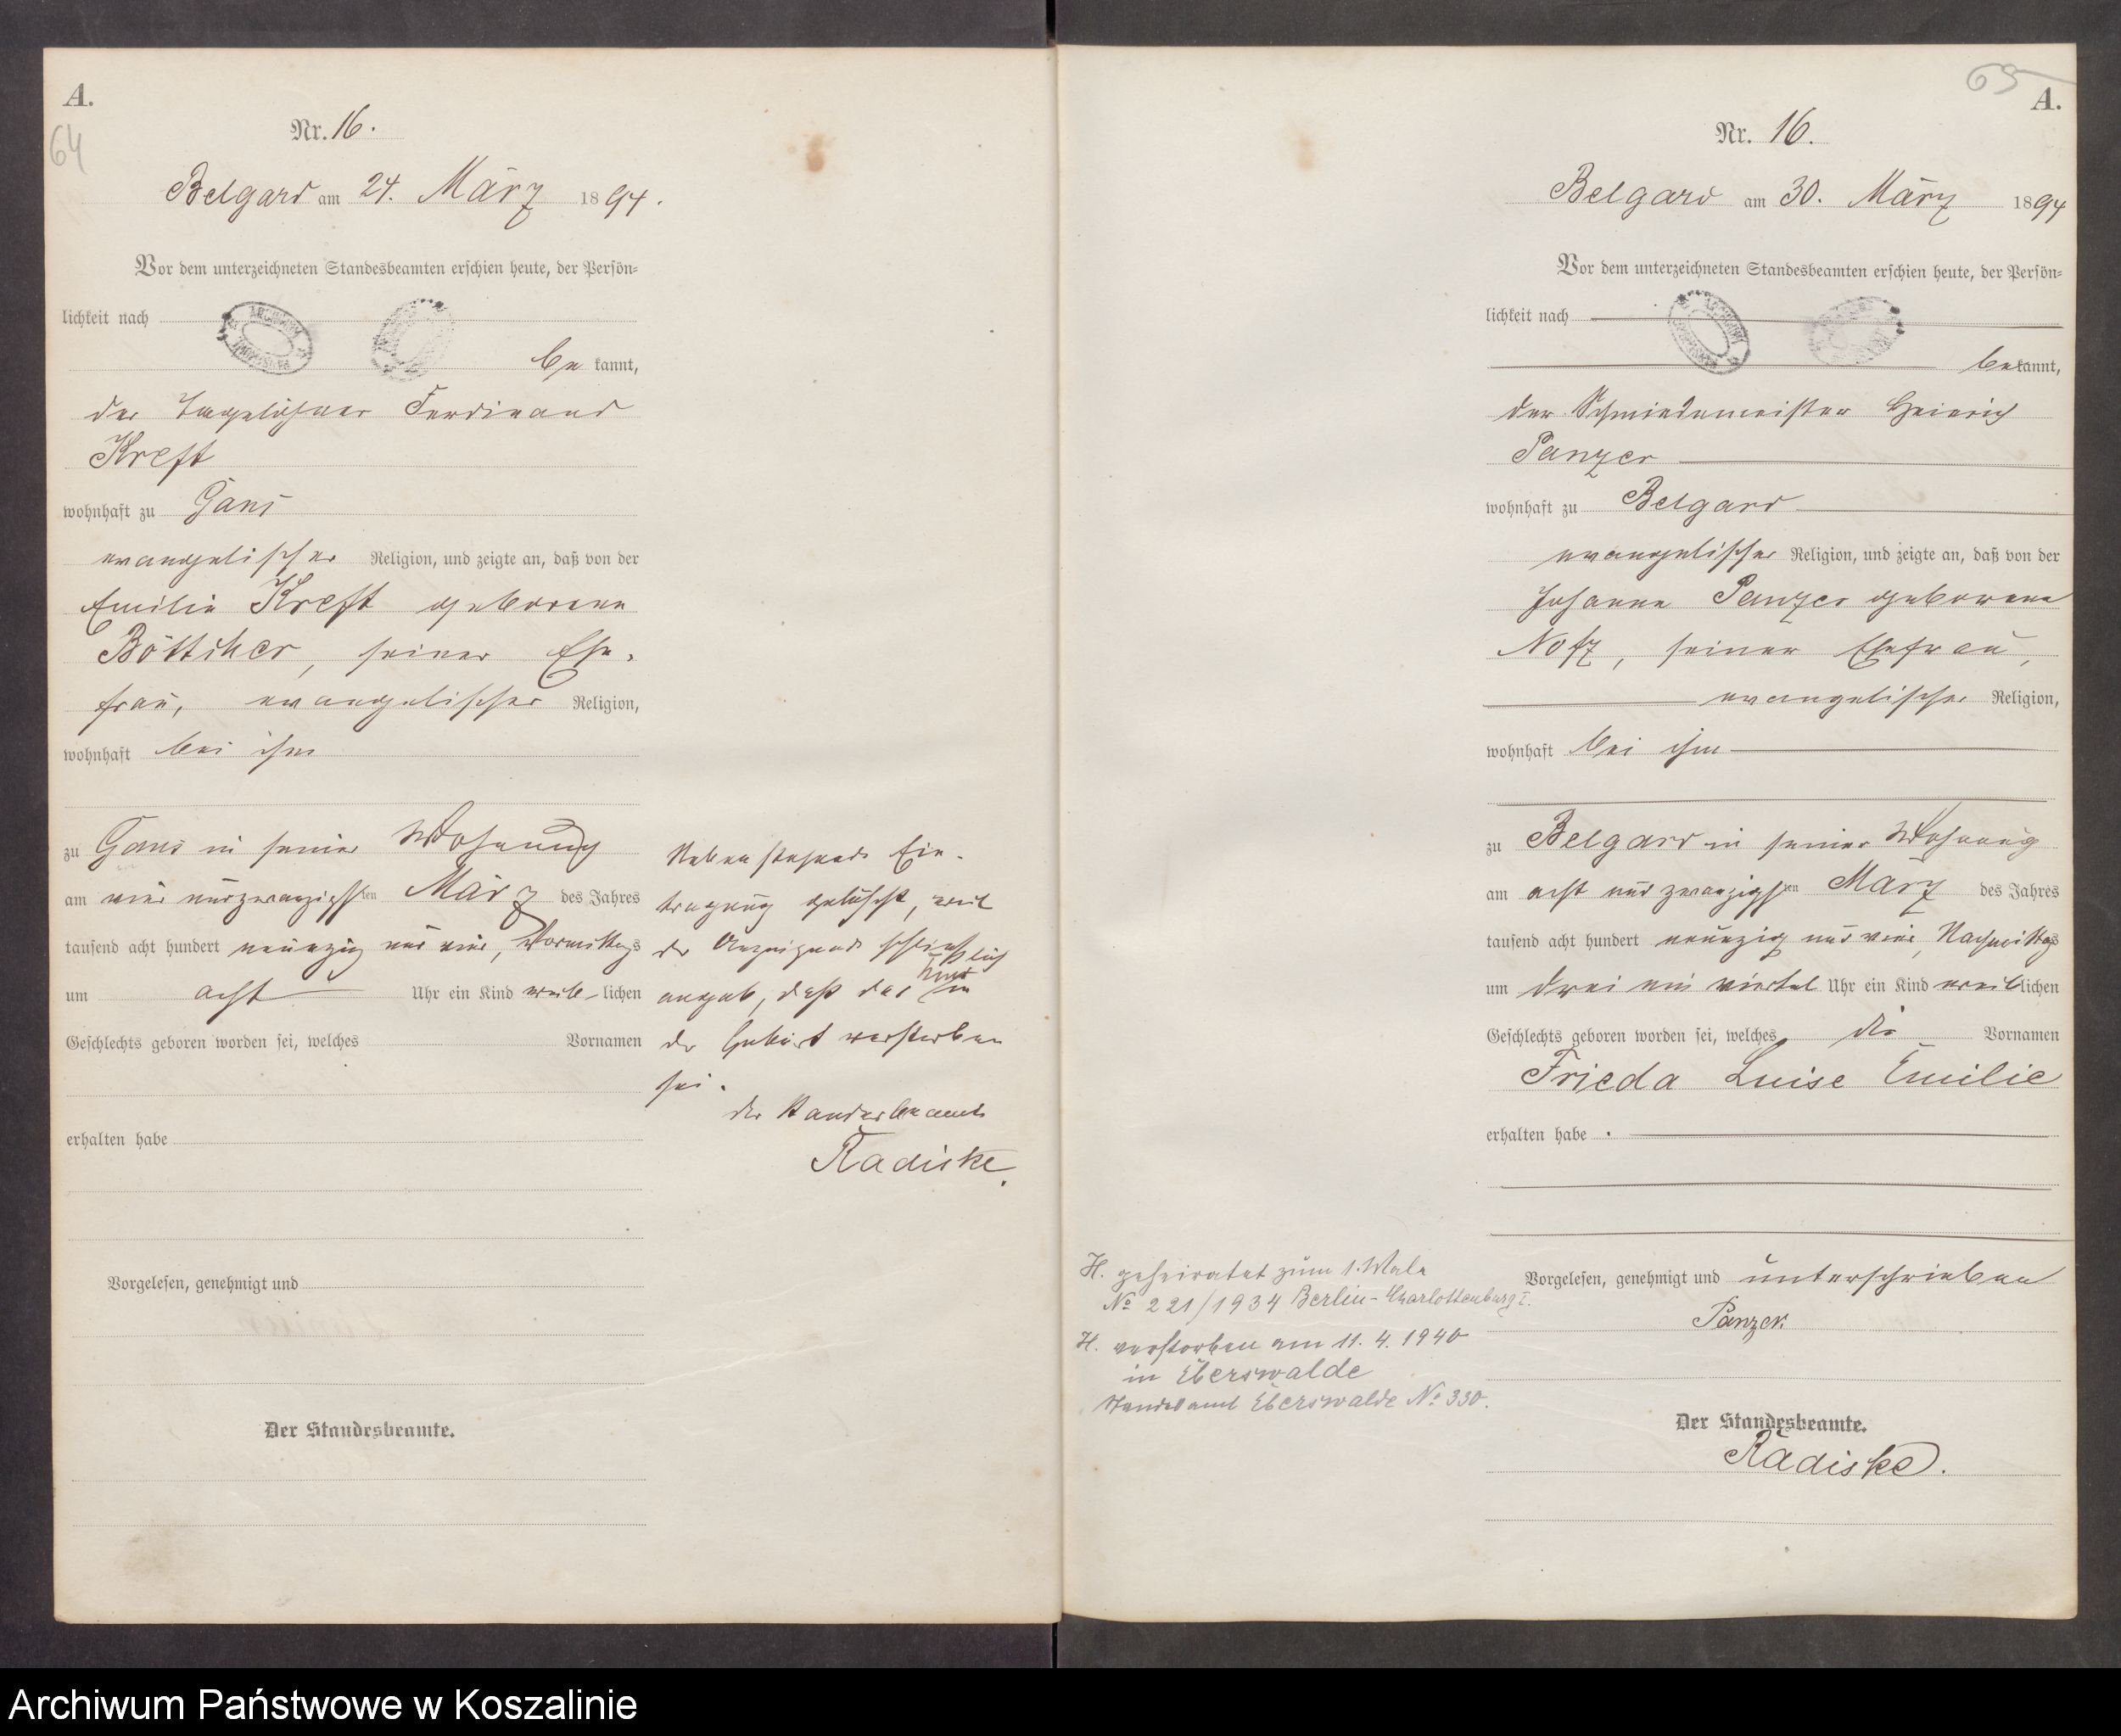 A.
64
Nr. 16.
Belgard am 24. März 1894.
Vor dem unterzeichneten Standesbeamten erschien heute, der Persön-
lichkeit nach
bekannt,
der Tagelöhner Ferdinand
Kreft
wohnhaft zu Gans
evangelischer Religion, und zeigte an, daß von der
Emilie Kreft geborene
Böttcher, seiner Ehe-
frau, evangelischer Religion,
wohnhaft bei ihm
zu Gans in seiner Wohnung
am vier und zwanzigsten März des Jahres
tausend acht hundert neunzig und vier, Vormittags
um acht Uhr ein Kind weib-lichen
Geschlechts geboren worden sei, welches Vornamen
erhalten habe
Vorgelesen, genehmigt und
Der Standesbeamte.
Nebenstehende Ein-
tragung gelöscht, weil
der Anzeigende schließlich
angab, daß das Kind in
der Geburt verstorben
sei.
Der Standesbeamte
Radiske.
65
A.
Nr. 16.
Belgard am 30. März 1894
Vor dem unterzeichneten Standesbeamten erschien heute, der Persön-
lichkeit nach
bekannt,
der Schmiedemeister Heinrich
Panzer
wohnhaft zu Belgard
evangelischer Religion, und zeigte an, daß von der
Johanne Panzer geborene
Notz, seiner Ehefrau,
evangelischer Religion,
wohnhaft bei ihm
zu Belgard in seiner Wohnung
am acht und zwanzigsten März des Jahres
tausend acht hundert neunzig und vier, Nachmittags
um drei ein viertel Uhr ein Kind weiblichen
Geschlechts geboren worden sei, welches die Vornamen
Frieda Luise Emilie
erhalten habe.
Vorgelesen, genehmigt und unterschrieben
Panzer
Der Standesbeamte.
Radiske.
H. geheiratet zum 1. Male
No 221/1934 Berlin-Charlottenburg I.
H. verstorben am 11. 4. 1940
in Eberswalde
Standesamt Eberswalde No 330.
Archiwum Państwowe w Koszalinie